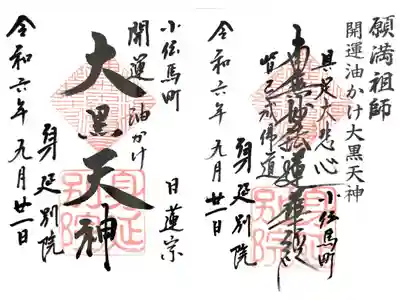 願満祖師
開運油かけ大黒天神
具足大悲心
小伝馬町
南無妙法蓮華経
皆已成佛道
身延別院
令和六年九月廿一日
小伝馬町
日蓮宗
開運
油かけ
大黒天神
身延別院
令和六年九月廿一日
身延別院
身延別院